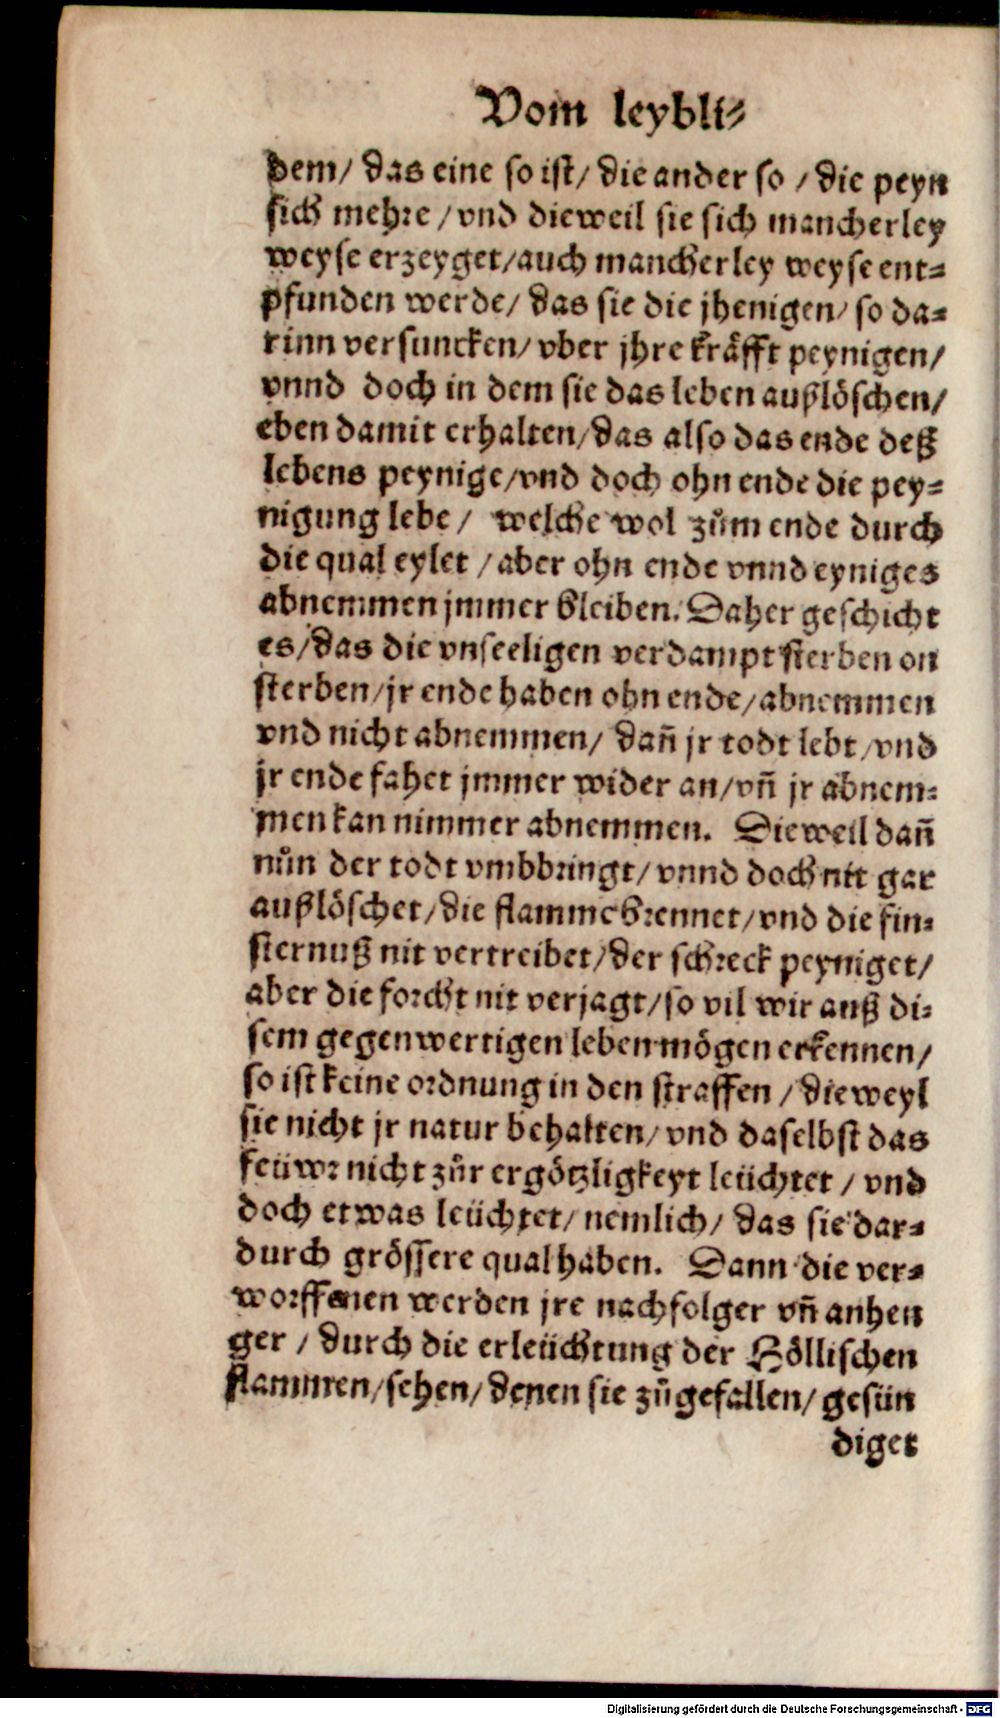 Vom leybli⸗
dem/ das eine so ist/ die ander so / die peyn
sich mehre / vnd dieweil sie sich mancherley
weyse erzeyget/ auch mancherley weyse ent⸗
pfunden werde/ das sie die jhenigen/ so da⸗
rinn versuncken/ vber jhre kräfft peynigen/
vnnd doch in dem sie das leben außlöschen/
eben damit erhalten/ das also das ende deß
lebens peynige/ vnd doch ohn ende die pey⸗
nigung lebe / welche wol zům ende durch
die qual eylet / aber ohn ende vnnd eyniges
abnemmen jmmer bleiben. Daher geschicht
es/ das die vnseeligen verdampt sterben on
sterben/ jr ende haben ohn ende/ abnemmen
vnd nicht abnemmen/ dañ jr todt lebt/ vnd
jr ende fahet jmmer wider an/ vñ jr abnem⸗
men kan nimmer abnemmen. Dieweil dañ
nůn der todt vmbbringt/ vnnd doch nit gar
außlöschet/ die flamme brennet/ vnd die fin⸗
sternuß nit vertreibet/ der schreck peyniget/
aber die forcht nit verjagt/ so vil wir auß di⸗
sem gegenwertigen leben mögen erkennen/
so ist keine ordnung in den straffen / dieweyl
sie nicht jr natur behalten/ vnd daselbst das
feüwr nicht zůr ergötzligkeyt leüchtet / vnd
doch etwas leüchtet/ nemlich/ das sie dar⸗
durch grössere qual haben. Dann die ver⸗
worffenen werden jre nachfolger vñ anhen
ger / durch die erleüchtung der Höllischen
flammen/ sehen/ denen sie zůgefallen/ gesün
diget
Digitalisierung gefördert durch die Deutsche Forschungsgemeinschaft - DFG